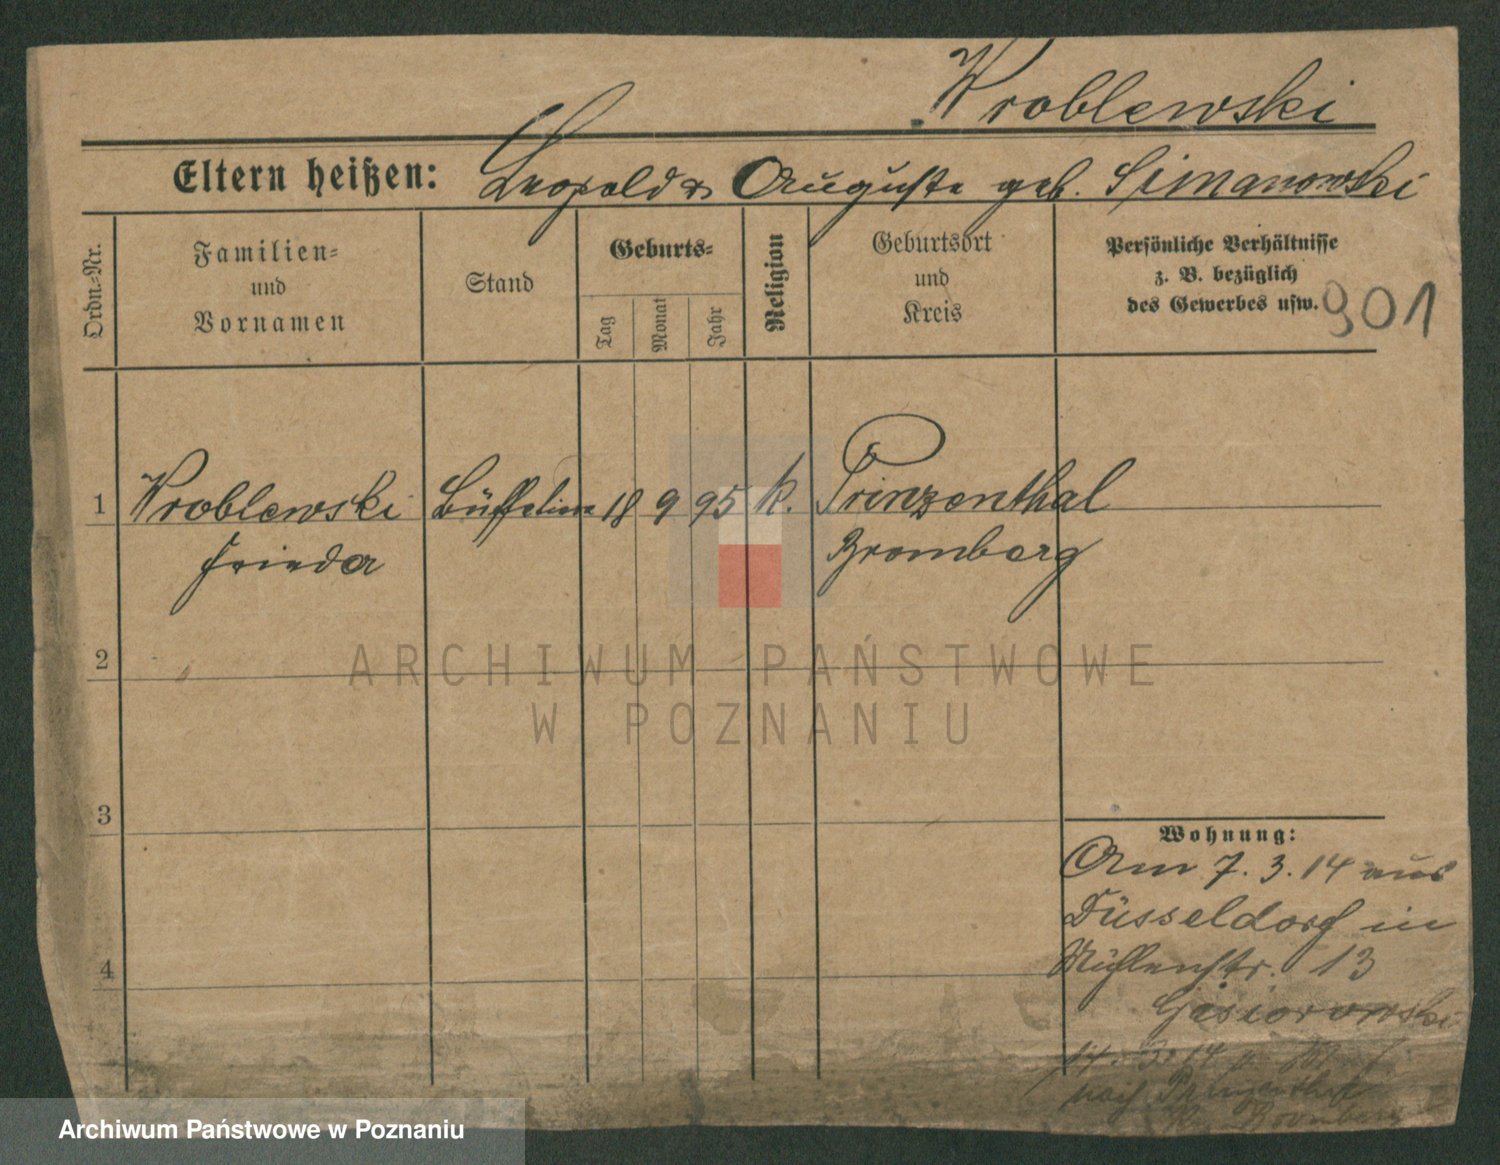 Wroblewski
Eltern heißen: Leopold & Auguste geb. Simanowski
Ordn.-Nr.
Familien-
und
Vornamen
Stand
Geburts-
Tag
Monat
Jahr
Religion
Geburtsort
und
Kreis
Persönliche Verhältnisse
z. B. bezüglich
des Gewerbes usw.
901
1 Wroblewski 18 9 95 k. Prinzenthal
Frieda Bromberg
2
3
4
Wohnung:
Am 7. 3. 14 aus
Düsseldorf in
Mühlenstr. 13
Gasiorowski
14. 3. 14
nach Prinzenthal
Bromberg
ARCHIWUM PAŃSTWOWE
W POZNANIU
Archiwum Państwowe w Poznaniu